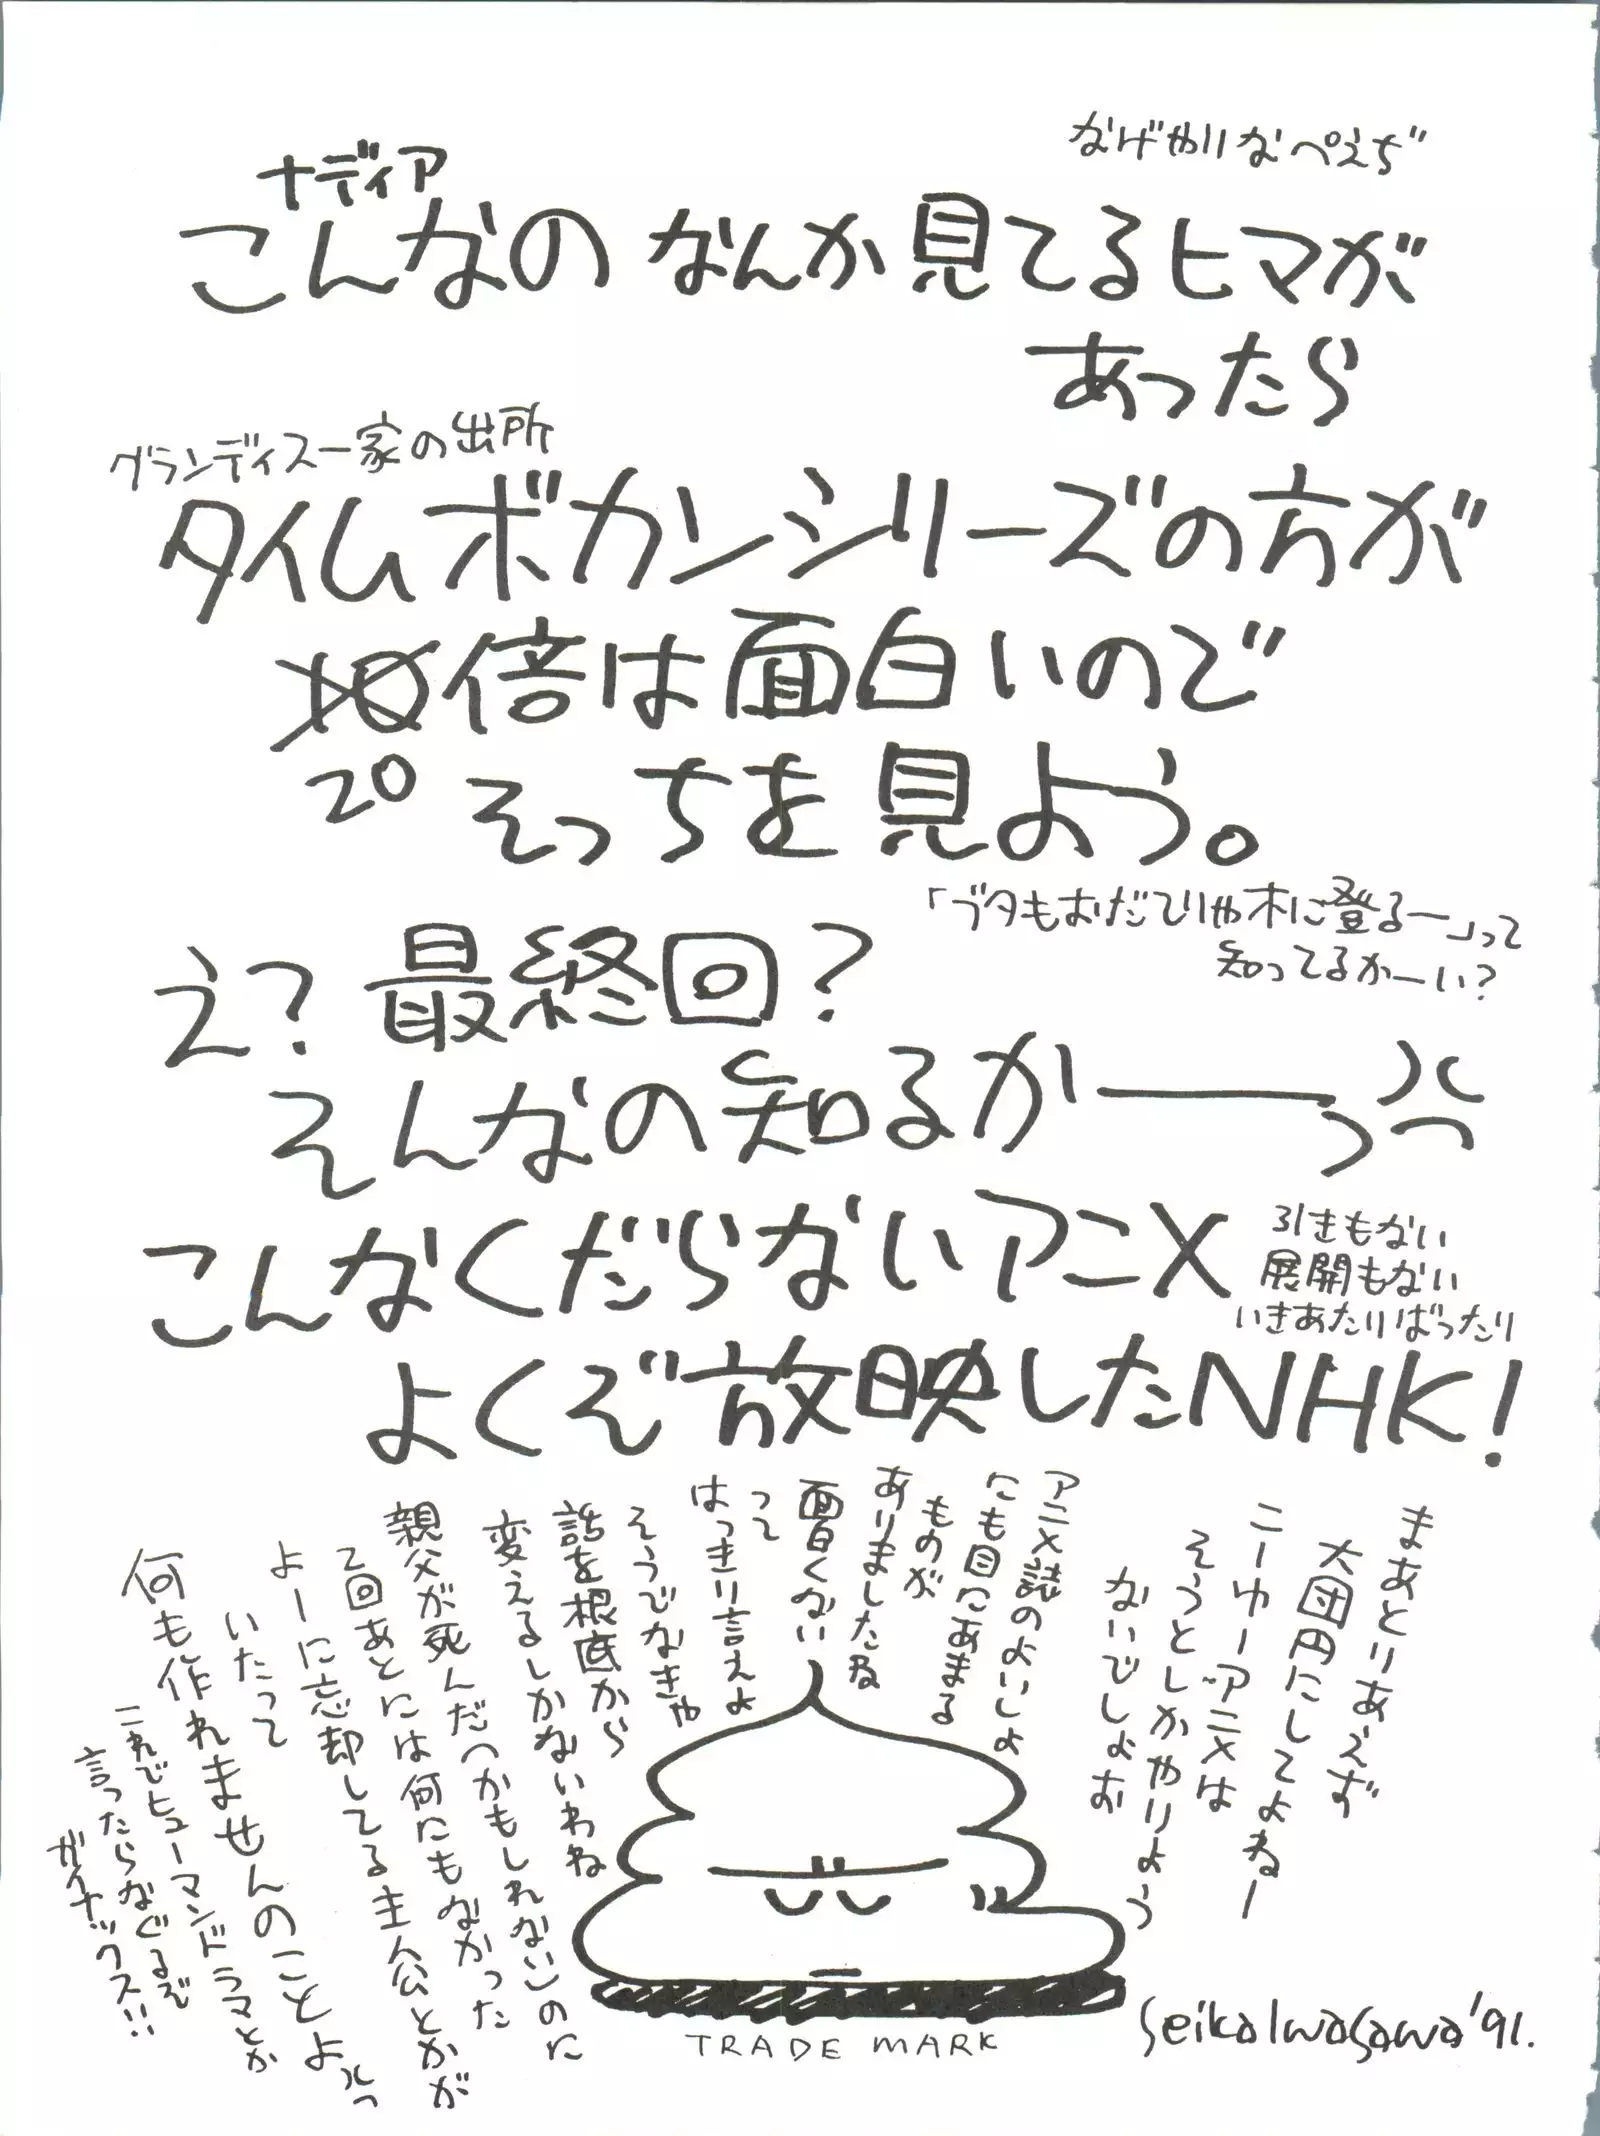 なげやりなぺえぢ
ナディア
こんなのなんか見てるヒマが
あったら
グランディス一家の出所
タイムボカンシリーズの方が
10倍は面白いので
20
そっちを見よう。
「ブタもおだてりゃ木に登るー」って
知ってるかーい?
え?最終回?
そんなの知るかーーっ
こんなくだらないアニメ
引きもない
展開もない
いきあたりばったり
よくぞ放映したNHK!
まあとりあえず
大団円にしてよねー
こーゆーアニメは
そうとしかやりよう
ないでしょお
アニメ誌のよいしょ
にも目にあまる
ものが
ありましたね
面白くない
って
はっきり言えよ
そうでなきゃ
話を根底から
変えるしかないわね
親父が死んだ(かもしれない)のに
2回あとには何にもなかった
よーに忘却してる主人公とかが
いたって
何も作れませんのことよっ
これでヒューマンドラマとか
言ったらなぐるぞ
ガイナックス!!
TRADE MARK
Seiko Iwasawa '91.